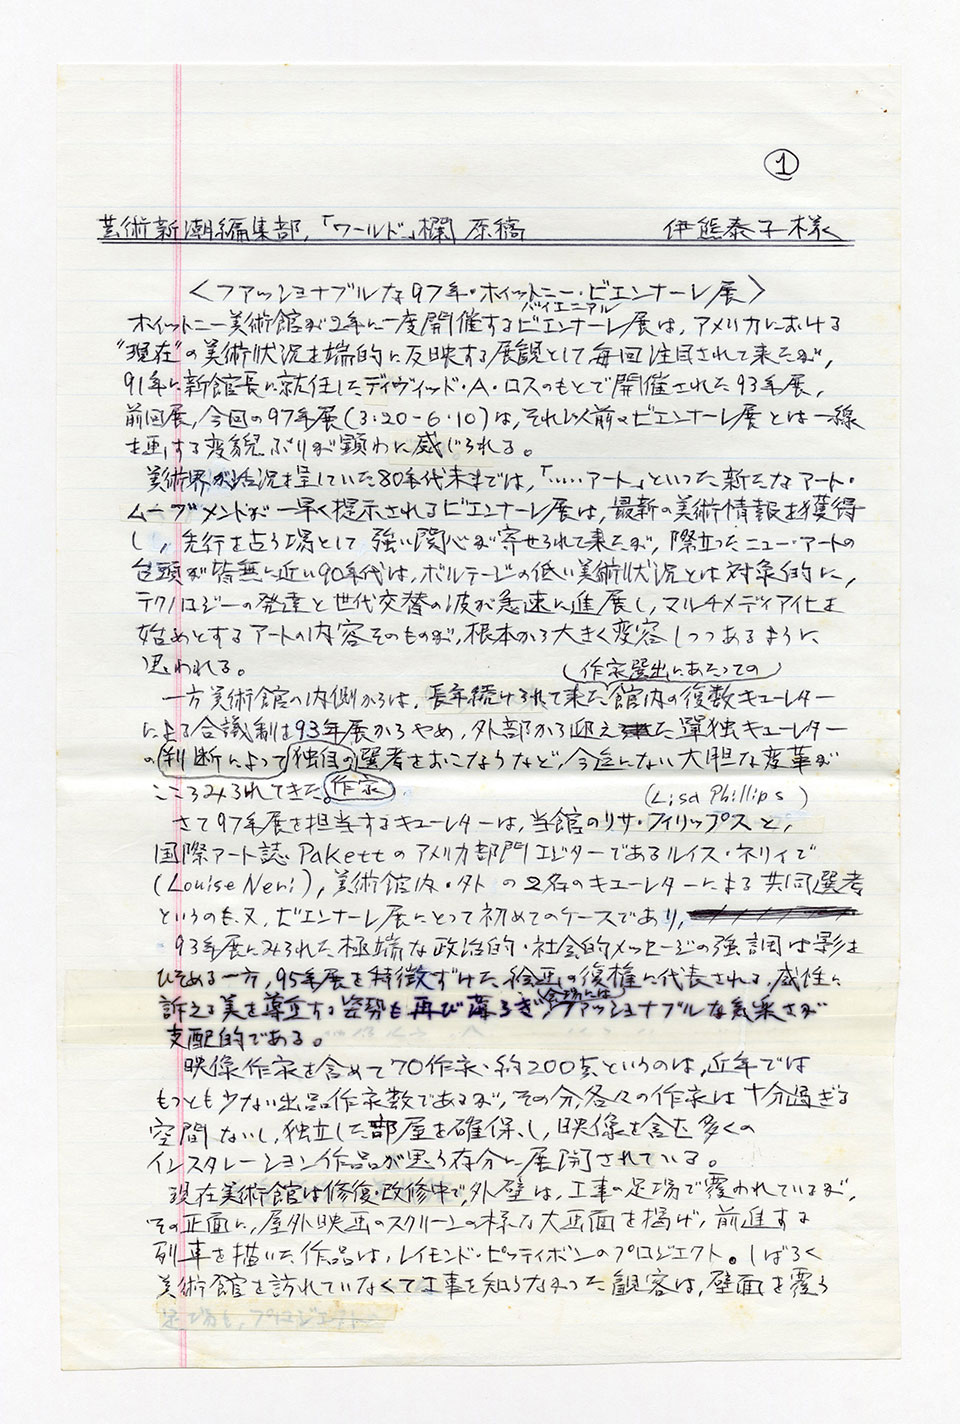 ①
芸術新潮編集部,「ワールド」欄 原稿 伊熊泰子様
〈ファッショナブルな97年・ホイットニー・ビエンナーレ展〉
バイエニアル
ホイットニー美術館が2年に一度開催するビエンナーレ展は,アメリカにおける
"現在"の美術状況を端的に反映する展観として毎回注目されて来たが,
91年に新館長に就任したディヴィッド・A・ロスのもとで開催された93年展,
前回展,今回の97年展(3・20-6・10)は,それ以前のビエンナーレ展とは一線
を画する変貌ぶりが顕わに感じられる。
美術界が活況を呈していた80年代末までは,「‥‥‥アート」といった新たなアート・
ムーブメントが一早く提示されるビエンナーレ展は,最新の美術情報を獲得
し,先行を占う場として強い関心が寄せられて来たが,際立ったニュー・アートの
台頭が皆無に近い90年代は,ボルテージの低い美術状況とは対象的に,
テクノロジーの発達と世代交替の波が急速に進展し,マルチメディア化を
始めとするアートの内容そのものが,根本から大きく変容しつつあるように
思われる。
(作家選出にあたっての)
一方美術館の内側からは,長年続けられて来た館内の複数キューレター
による合議制は93年展からやめ,外部から迎えた単独キューレター
の判断によって独自の選考をおこなうなど,今迄にない大胆な変革が
こころみられてきた。作家
(Lisa Phillips)
さて97年展を担当するキューレターは,当館のリサ・フィリップスと,
国際アート誌Pakettのアメリカ部門エディターであるルイス・ネリィで
(Louise Neri),美術館内・外の2名のキューレターによる共同選考
というのも又,ビエンナーレ展にとって初めてのケースであり,
93年展にみられた極端な政治的・社会的メッセージの強調は影を
ひそめる一方,95年展を特徴ずけた絵画の復権に代表される,感性に
会場には
訴える美を尊重する姿勢も再び薄らぎ,ファッショナブルな気楽さが
支配的である。
映像作家を含めて70作家・約200点というのは,近年では
もっとも少ない出品作家数であるが,その分各々の作家は十分過ぎる
空間ないし,独立した部屋を確保し,映像を含む多くの
インスタレーション作品が思う存分に展開されている。
現在美術館は修復・改修中で,外壁は,工事の足場で覆われているが,
その正面に,屋外映画のスクリーンの様な大画面を掲げ,前進する
列車を描いた作品は,レイモンド・ピッティボンのプロジェクト。しばらく
美術館を訪れていなくて工事を知らなかった観客は,壁面を覆う
足場も,プロジェクト